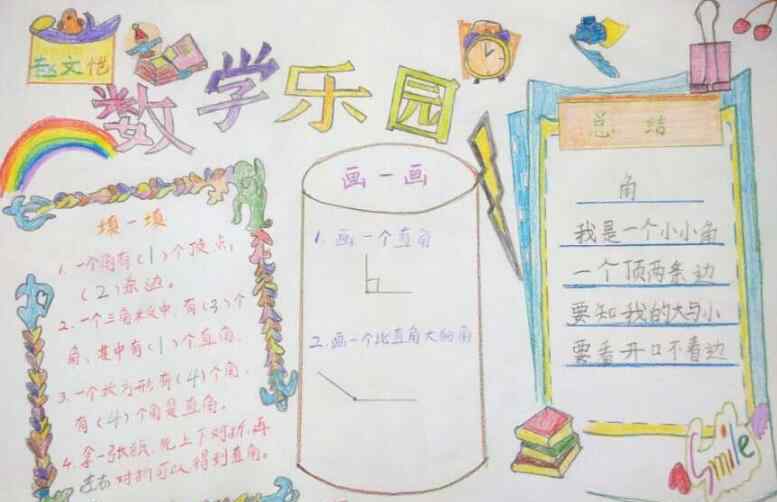 赵文恺
数学乐园
填一填
1.一个角有(1)个顶点,
(2)条边。
2.一个三角板中,有(3)个
角、其中有(1)个直角。
3.一个长方形有(4)个角,
有(4)个角是直角。
4.拿一张纸,先上下对折,再
左右对折可以得到直角。
画一画
1.画一个直角
2.画一个比直角大的角
总结
角
我是一个小小角
一个顶两条边
要知我的大与小
要看开口不看边
Smile